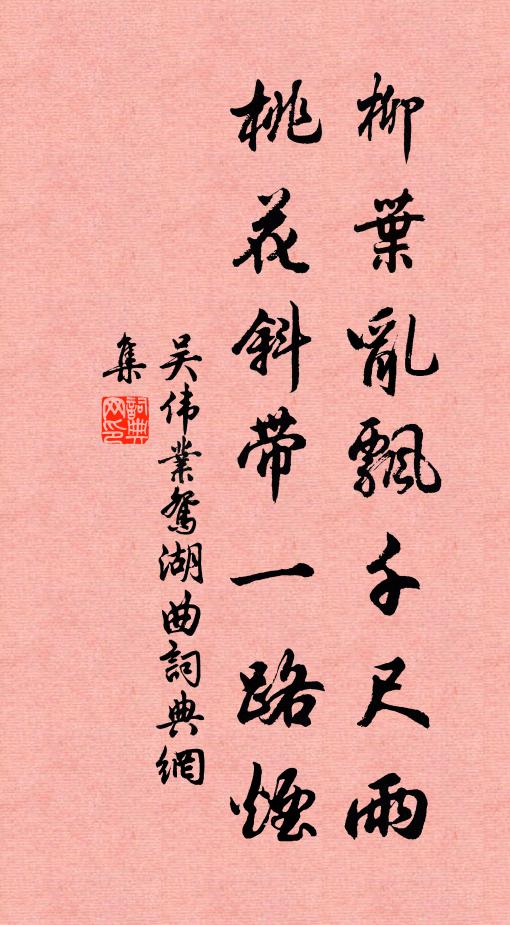 柳葉亂飄千尺雨
桃花斜带一路煙
吴伟業鴛湖曲詞典網
集
詞典網印